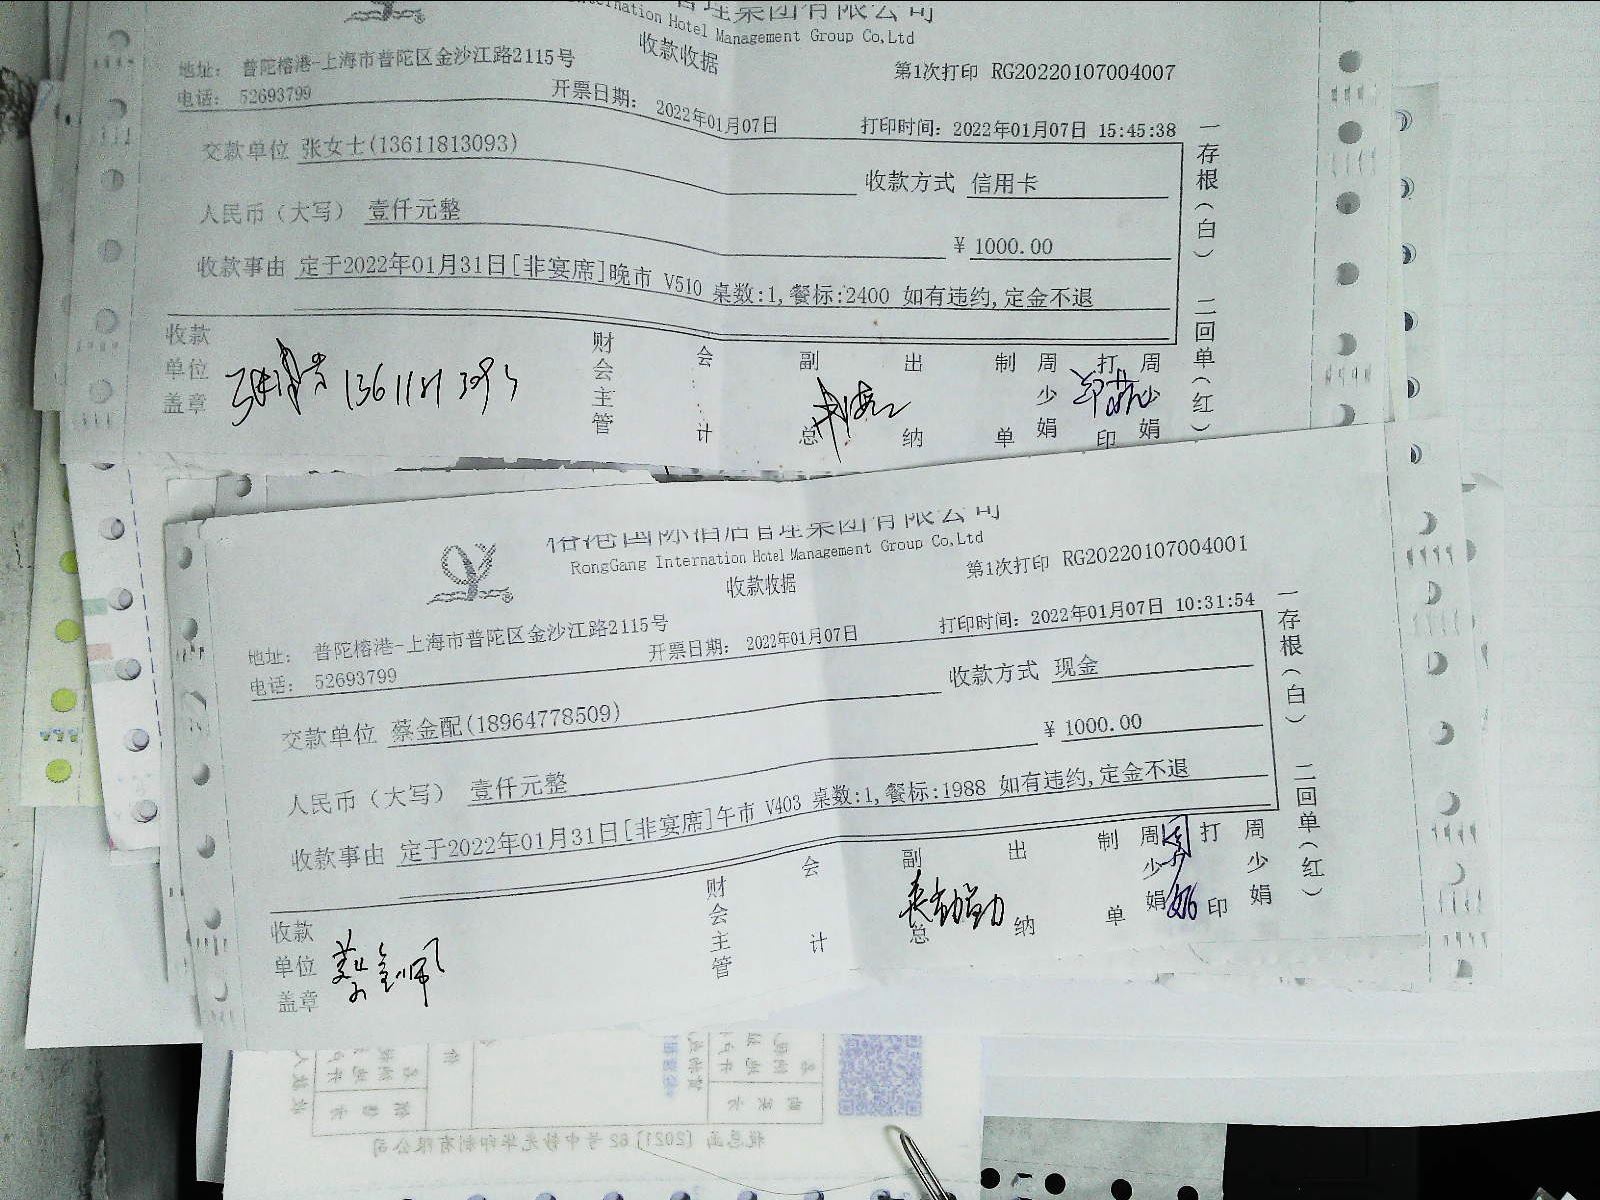 管理集团有限公司
Internation Hotel Management Group Co,Ltd
收款收据
第1次打印 RG20220107004007
地址: 普陀榕港-上海市普陀区金沙江路2115号
电话: 52693799
开票日期: 2022年01月07日
打印时间: 2022年01月07日 15:45:38
交款单位 张女士(13611813093)
收款方式 信用卡
人民币(大写) 壹仟元整
¥ 1000.00
收款事由 定于2022年01月31日[非宴席]晚市 V510 桌数:1,餐标:2400 如有违约,定金不退
收款单位盖章
财会主管
会计
副总
出纳
制单
周少娟
打印
周少娟
一存根(白) 二回单(红)
榕港国际酒店管理集团有限公司
RongGang Internation Hotel Management Group Co,Ltd
收款收据
第1次打印 RG20220107004001
地址: 普陀榕港-上海市普陀区金沙江路2115号
电话: 52693799
开票日期: 2022年01月07日
打印时间: 2022年01月07日 10:31:54
交款单位 蔡金配(18964778509)
收款方式 现金
人民币(大写) 壹仟元整
¥ 1000.00
收款事由 定于2022年01月31日[非宴席]午市 V403 桌数:1,餐标:1988 如有违约,定金不退
收款单位盖章
蔡金佩
财会主管
会计
副总
出纳
制单
周少娟
打印
周少娟
一存根(白) 二回单(红)